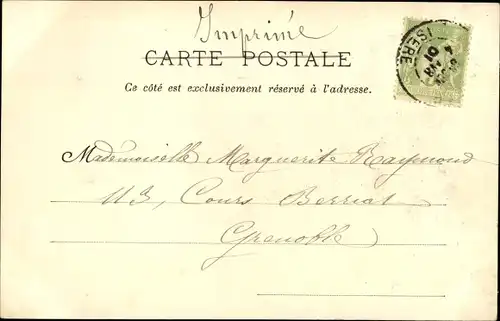 Imprimé
CARTE POSTALE
Ce côté est exclusivement réservé à l'adresse.
ISERE
01
Mademoiselle Marguerite Raymond
113, Cours Berriat
Grenoble